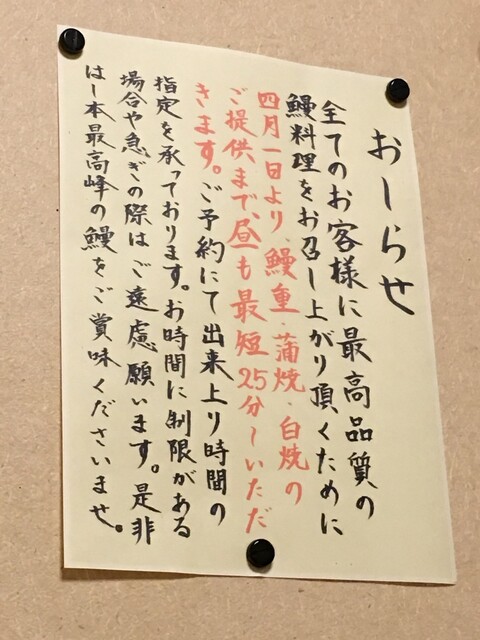 おしらせ
全てのお客様に最高品質の
鰻料理をお召し上がり頂くために
四月一日より、鰻重・蒲焼・白焼の
ご提供まで、昼も最短25分〜いただ
きます。ご予約にて出来上り時間の
指定を承っております。お時間に制限がある
場合や急ぎの際はご遠慮願います。是非
はし本最高峰の鰻をご賞味くださいませ。